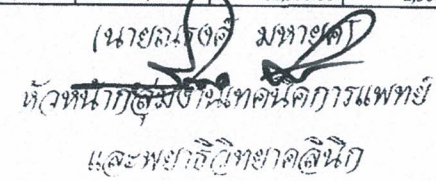 (นายณรงค์ มหายศ)
หัวหน้ากลุ่มงานเทคนิคการแพทย์
และพยาธิวิทยาคลินิก